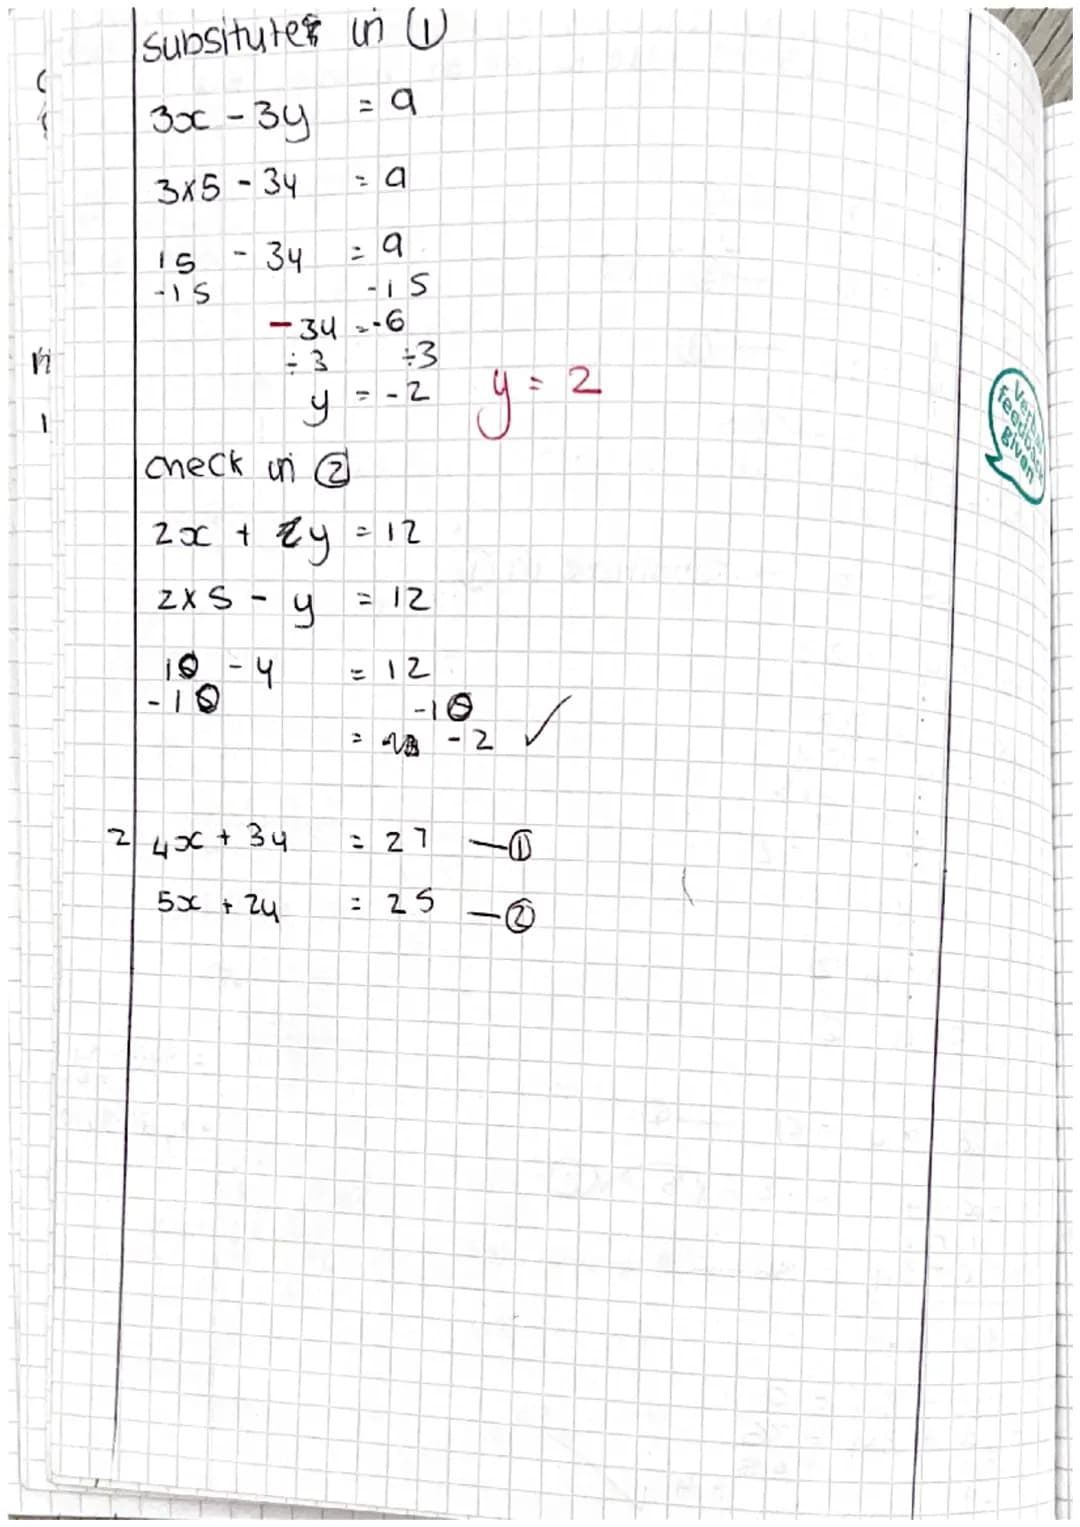 subsitutes in ①
3x - 3y = 9
3×5 - 3y = 9
15 - 3y = 9
-15 -15
- 3y = -6
÷3 ÷3
y = -2 y = 2
check in ②
2x + 2y = 12
2×5 - y = 12
10 - y = 12
-10 -10
= -2 ✓
2 4x + 3y = 27 — ①
5x + 2y = 25 — ②
Verbal
feedback
given